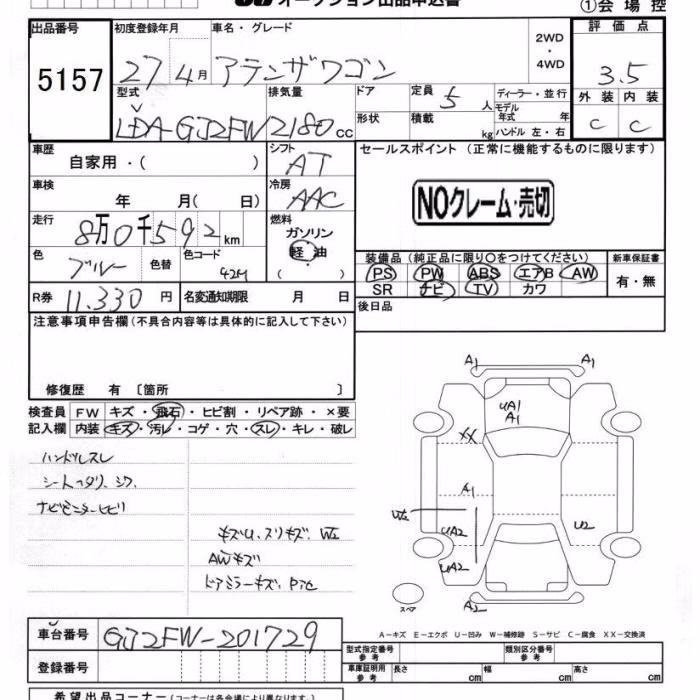 オークション出品申込書
①会場控
出品番号 5157
初度登録年月 27年4月
車名・グレード アテンザワゴン
2WD・4WD
評価点 3.5
外装 C 内装 C
型式 LDA-GJ2FW
排気量 2180cc
ドア 形状
定員 5人
積載 kg
ディーラー・並行
モデル年式 年
ハンドル 左・右
車歴 自家用・( )
シフト AT
セールスポイント (正常に機能するものに限ります)
NOクレーム・売切
車検 年 月( 日)
冷房 AAC
走行 8万0千592km
燃料 ガソリン 軽油 ( )
色 ブルー 色替
色コード 42M
装備品 (純正品に限り○をつけてください)
PS PW ABS エアB AW
SR ナビ TV カワ
新車保証書 有・無
R券 11,330円
名変通知期限 月 日
後日品
注意事項申告欄(不具合内容等は具体的に記入して下さい)
修復歴 有 〔箇所 〕
検査員記入欄
FW キズ・飛石・ヒビ割・リペア跡・×要
内装 キズ・汚レ・コゲ・穴・スレ・キレ・破レ
ハンドルスレ
シートヘタリ、シワ
ナビモニターヒビ
キズU、スリキズ、W2
AWキズ
ドアミラーキズ、
A1 A1
UA1
A1
XX
A1
W2
UA2
U2
UA2
A2
スペア
A-キズ E-エクボ U-凹み W-補修跡 S-サビ C-腐食 XX-交換済
車台番号 GJ2FW-201729
登録番号
型式指定番号 参考
類別区分番号 参考
車庫証明用 参考 長さ cm 幅 cm 高さ cm
希望出品コーナー(コーナーは各会場により異なります)